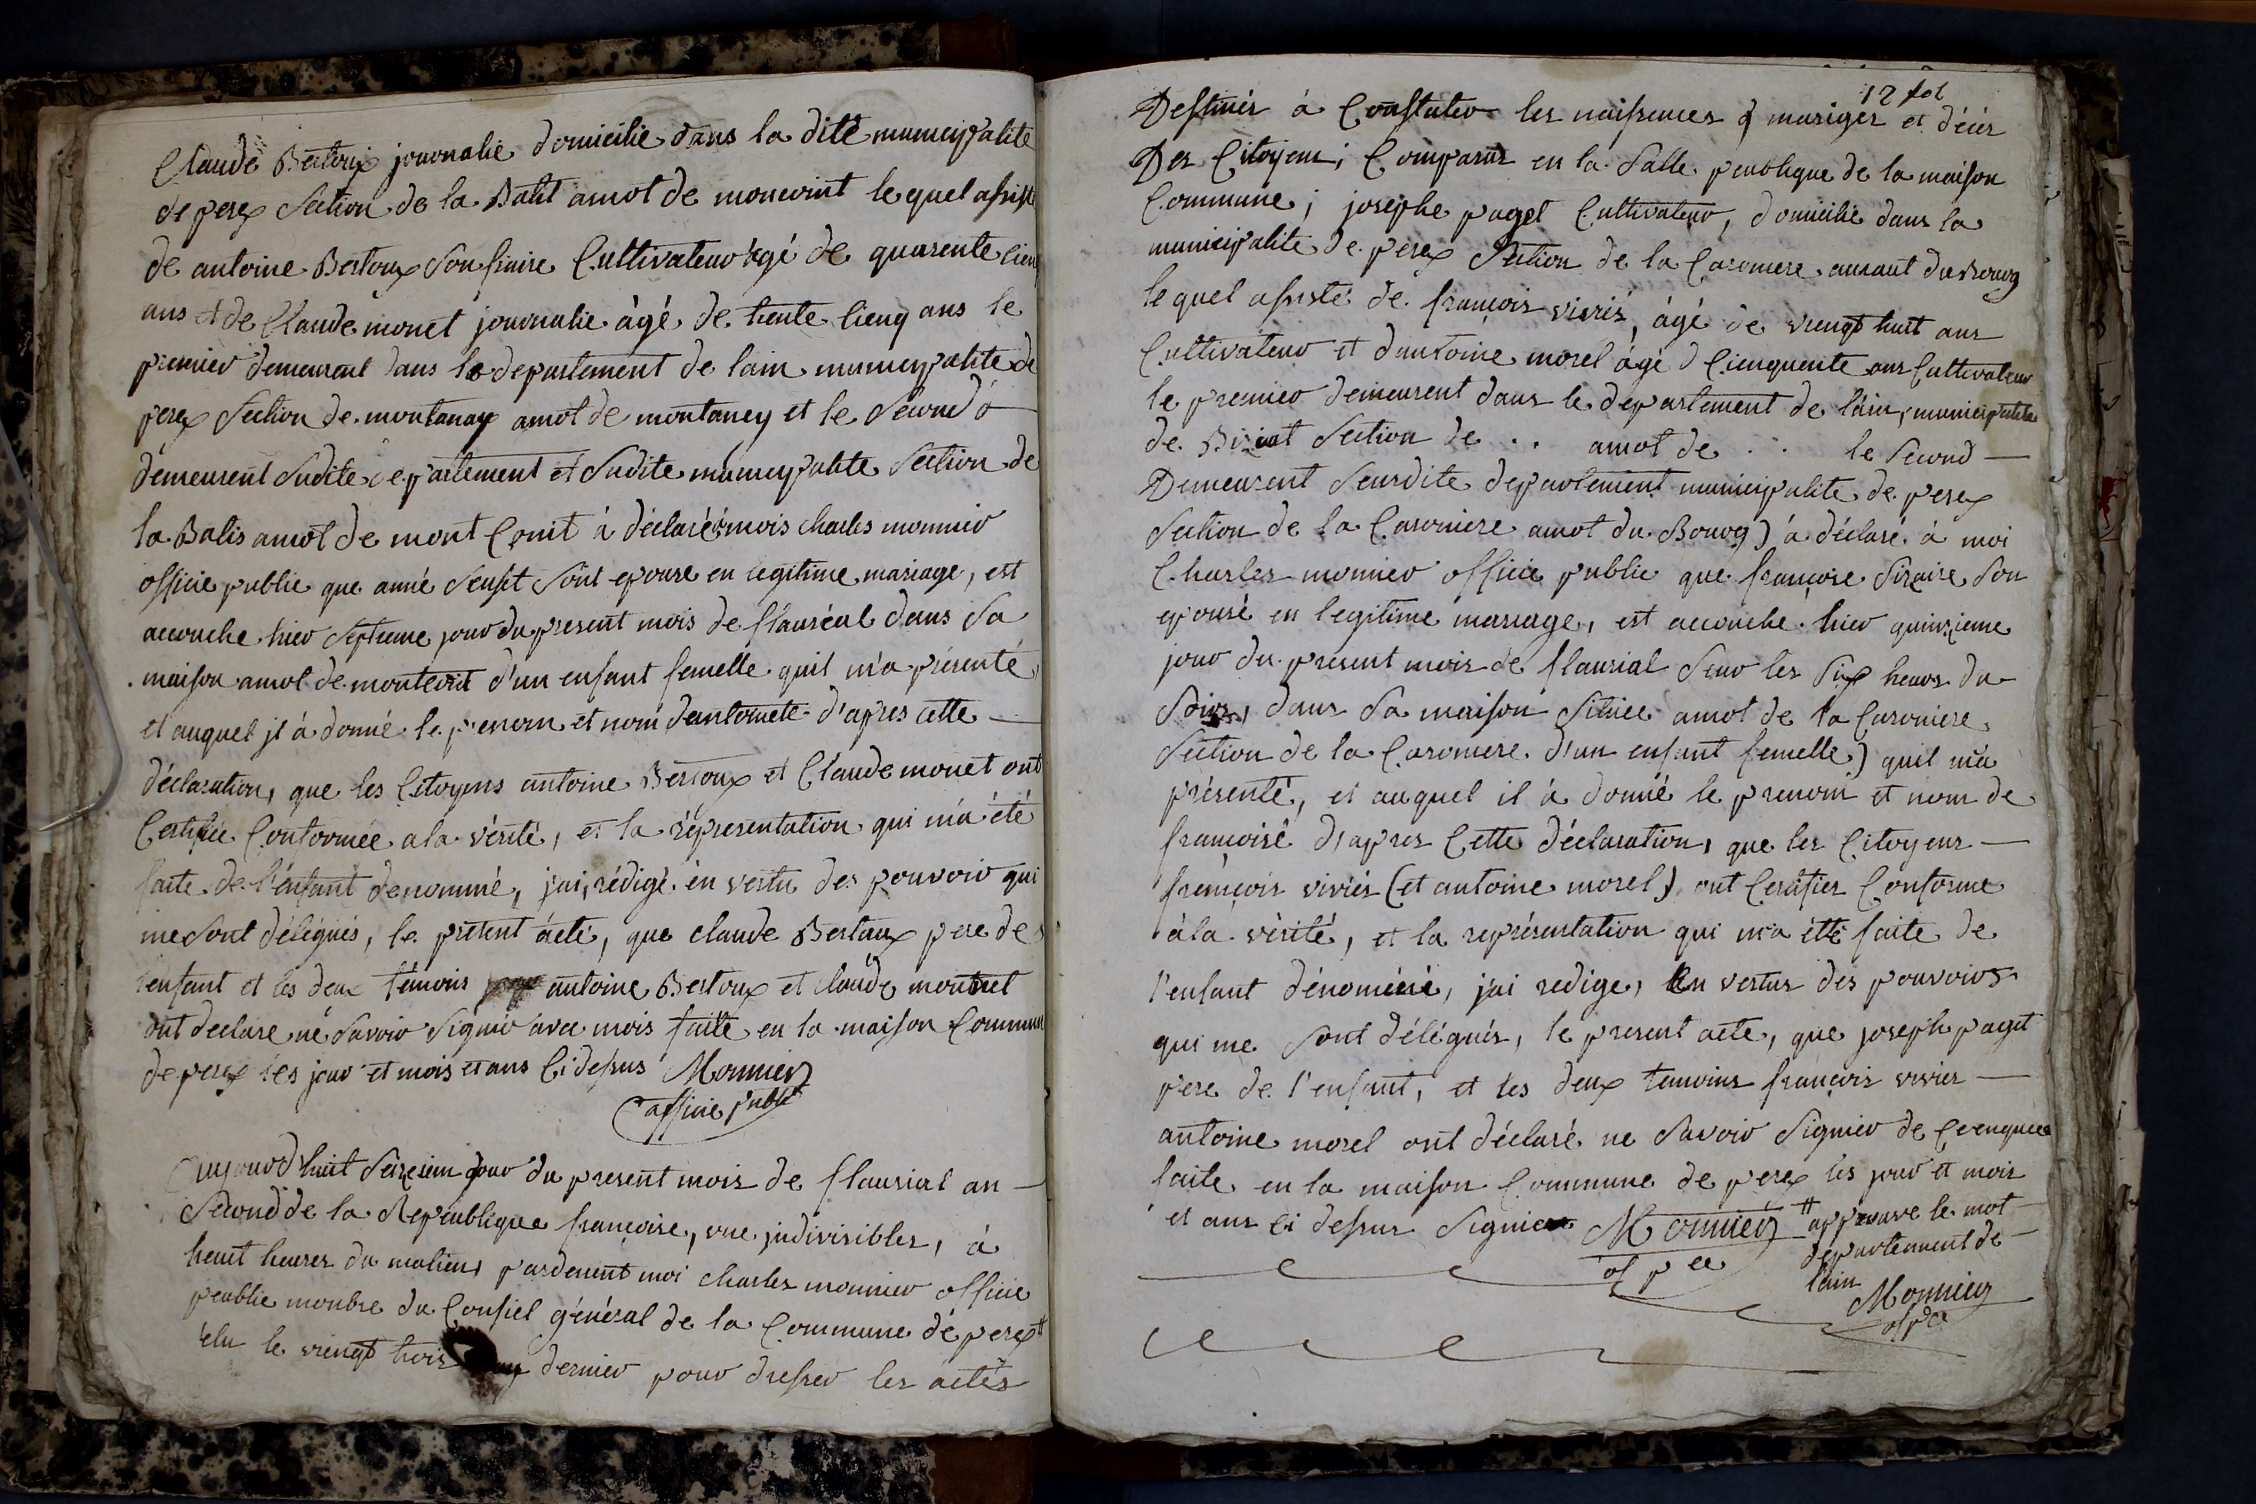 Claude Bertoux journalie domicilie dans la dite municipalite
de perex Section de la Balit amot de moncoint le quel assiste
de antoine Bertoux Son fraire Cultivateur âgé de quarente cien
ans et de Claude monet journalie âgé de trente cienq ans le
premier demeurent dans le departement de lain municipalite de
perex Section de montanay amot de montaney et le Second
demeurent Sudite departement et Sudite municipalite Section de
la Balis amot de mont Conit à déclaré à mois charles monnier
officie public que anné Sont epouse en legitime mariage, est
accouche hier Septieme jour du present mois de flauréal dans Sa
maison amot de d'un enfant femelle quil m'a présenté
et auquel jl à donné le prenom et nom dantoinete d'apres cette
déclaration, que les Citoyens antoine Bertoux et Claude monet ont
Certifiée Conformée a la vérité, et la répresentation qui m'á été
faite de l'énfant denommé, jai, rédigé en vertu des pouvoir qui
me Sont délégués, le present ácte, que claude Bertoux pere de
l'enfant et les deux témoins antoine Bertoux et claude monnet
ont declare ne Savoir Signier avec mois faite en la maison Commune
de perex les jour et mois et ans Ci dessus Monnier
officie public
Aujourd'huit Seizesim jour du present mois de flaurial an
Second de la Repeublique françoise, une jndivisibles, à
heuit heures du matiens pardevent moi charles monnier officie
peublic monbre du Consiel général de la Commune dé perex #
élu le viengt trois dernier pour dresser les actés
12 fol
Destinés à Constater les naissences mariges et décès
Des Citoyens; Comparus en la Salle peublique de la maison
Commune; josephe paget Cultivateur, domicilie dans la
municipalite de perex Section de la Caroniere du Bourg
le quel assisté de françois vivier, âgé de viengt huit ans
Cultivateur et dantoine morel âgé d Cienquente ans Cultivateur
le premier demeurent dans le departement de l'ain, municipalite
de Biziat Section de .. amot de .. le Second
Demeurent Seusdite departement municipalite de perex
Section de la Caroniere amot du Bourg) à déclaré à moi
Charles monnier officie public que françoise Siraire Son
epousé en legitime mariage, est accouche hier quinzieme
jour du present mois de flaurial Seur les Six heurs du
Soirs, dans Sa maison Située amot de la Caroniere
Section de la Caroniere d'un enfant femelle) quil m'a
présenté, et auquel il à donné le prenom et nom de
françoisé d'apres Cette déclaration, que les Citoyens
françois vivier (et antoine morel) ont Certifier Conforme
à la vérité, et la représentation qui m'a été faite de
l'enfant dénommé, j'ai redige, en vertus des pouvoirs
qui me Sont délégués, le present acte, que joseph paget
pere de l'enfant, et les deux temoins françois vivier
antoine morel ont déclaré ne Savoir Signier de
faite en la maison Commune de perex les jour et mois
et ans Ci dessus Signier Monnier
of p ce
# approuve le mot
departement de
lain
Monnier
of p ce